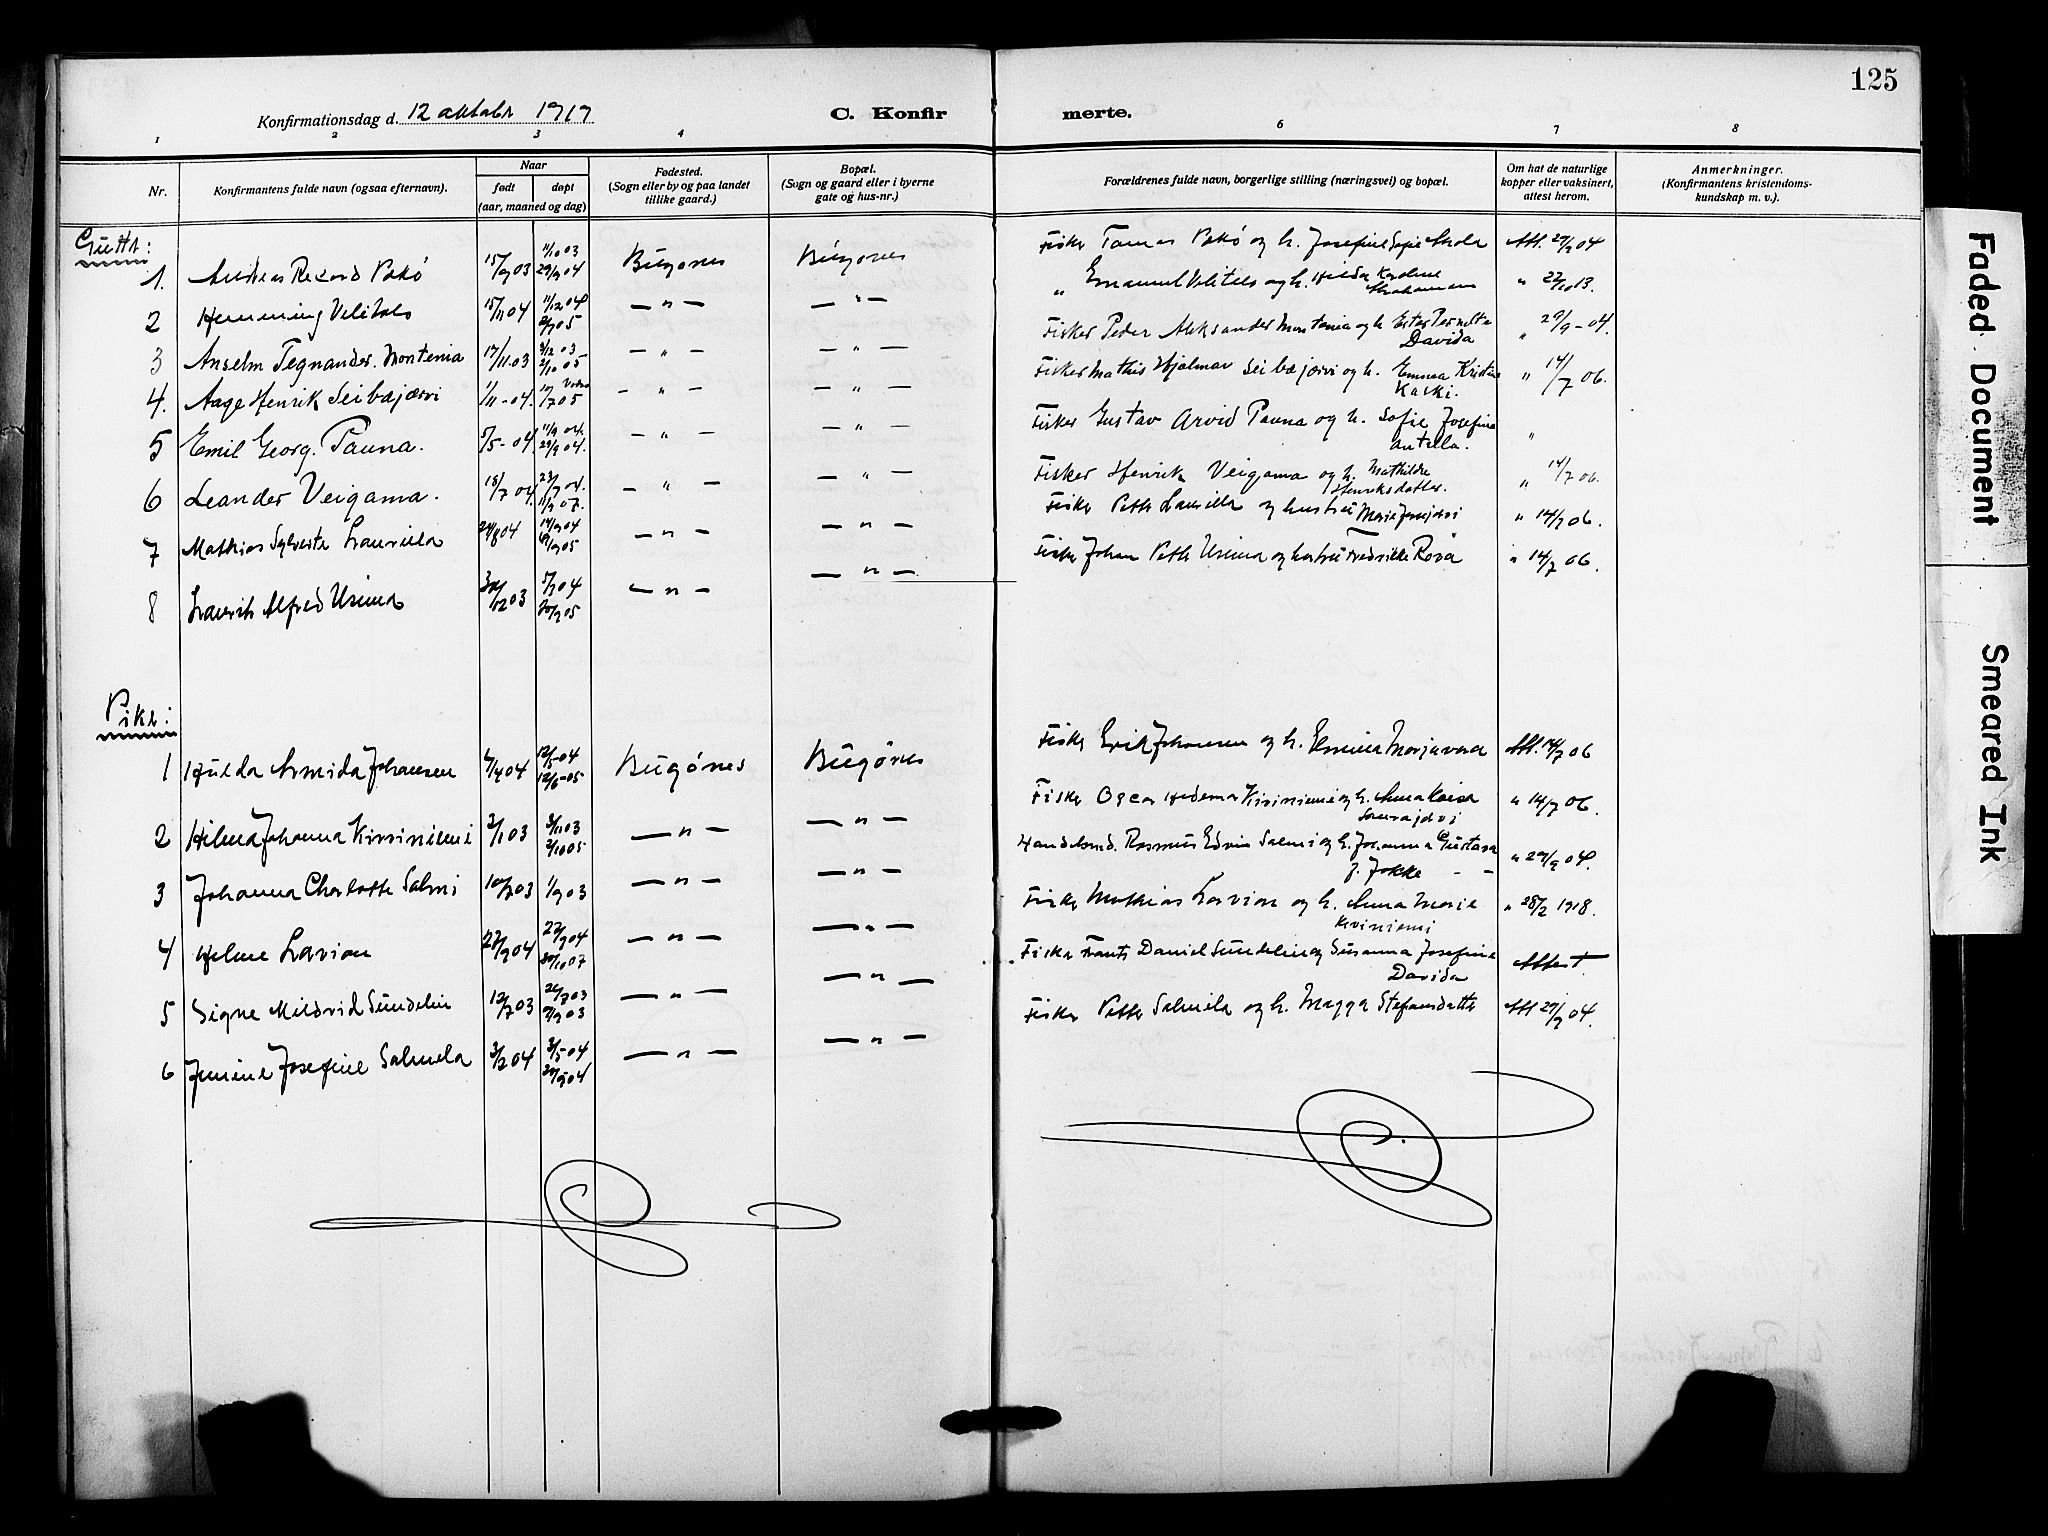 125
Konfirmationsdag d. 12 oktober 1919
C. Konfirmerte.
1 2 3 4 6 7 8
Nr.
Konfirmantens fulde navn (ogsaa efternavn).
Naar
født
døpt
(aar, maaned og dag)
Fødested.
(Sogn eller by og paa landet
tillike gaard.)
Bopæl.
(Sogn og gaard eller i byerne
gate og hus-nr.)
Forældrenes fulde navn, borgerlige stilling (næringsvei) og bopæl.
Om hat de naturlige
kopper eller vaksinert,
attest herom.
Anmerkninger.
(Konfirmantens kristendoms-
kundskap m. v.).
Gutter:
1. Andreas Rekord Pakó 15/9 03 11/10 03 29/9 04 Bugönes Bugönes Fisker Tomas Pakó og h. Josefine Sofie Att. 29/9 04
2 Hemming 15/11 04 11/12 04 — " — — " — " Emanuel og h. Hilda Karoline Abrahamsen " 22/10 13.
3 Anselm Tegnander Montenia 17/11 03 — " — — " — Fisker Peder Aleksander Montenia og h. Ester Pernette Davida " 29/9 - 04.
4. Aage Henrik Seibæjærvi 1/11 - 04. 10/7 05 — " — — " — Fisker Mathis Hjalmar Seibæjærvi og h. Emma Kristine Kaski. " 14/7 06.
5 Emil Georg. Pauna. 5/5 - 04. 11/9 04. 29/9 04. — " — — " — Fisker Gustav Arvid Pauna og h. Sofie Josefine Antella. "
6 Leander Veigama. 18/7 04. 23/7 04. — " — — " — Fisker Henrik Veigama og h. Mathilde Henriksdatter. " 14/7 06.
7 Mathias Sylveste Laurilla 24/8 04 14/9 04 — " — — " — Fisker Petter Laurilla og hustru Marie " 14/7 06.
8 Laurits Alfred Usima 12 03 — " — — " — Fisker Johan Petter Usima og hustru Fredrikke Rosa " 14/7 06.
Piker:
1 Hulda Armida Johansen 4/4 04 12/5 - 04 12/6 - 05 Bugönes Bugönes Fisker Erik Johansen og h. Elmina Marjavara Att. 14/7 06
2 Hilma Johanna Kiviniemi 2/11 03 — " — — " — Fisker Oscar Hedman Kiviniemi og h. Anna Kaisa " 14/7 06.
3 Johanna Charlotte Salmi 10/7 03 1/9 03 — " — — " — Handelsmd. Rasmus Edvin Salmi og h. Johanna Gustava f. Jokke " 29/9 04.
4 Helene Lavion 27/9 04 20/10 07 — " — — " — Fisker Mathias Lavion og h. Anna Marie Kiviniemi " 28/2 1918.
5 Signe Mildrid Sundelin 12/7 03 26/7 03 — " — — " — Fisker Frants Daniel Sundelin og Susanna Josefine Davida Attest
6 Jenine Josefine Salmela 3/2 04 3/5 - 04 — " — — " — Fisker Petter Salmela og h. Magga Stefansdatter Att 29/9 04.
Faded Document
Smeared Ink